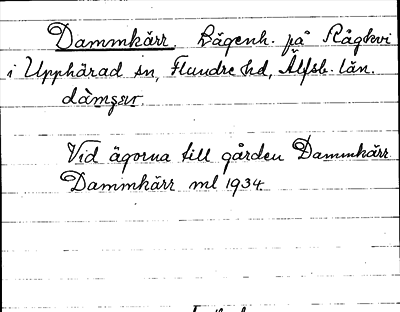 Dammkärr. Lägenh. på Rågkvi
i Upphärad sn, Flundre hd, Älfsb. län.
dàmçær.
Vid ägorna till gården Dammkärr
Dammkärr ml 1934